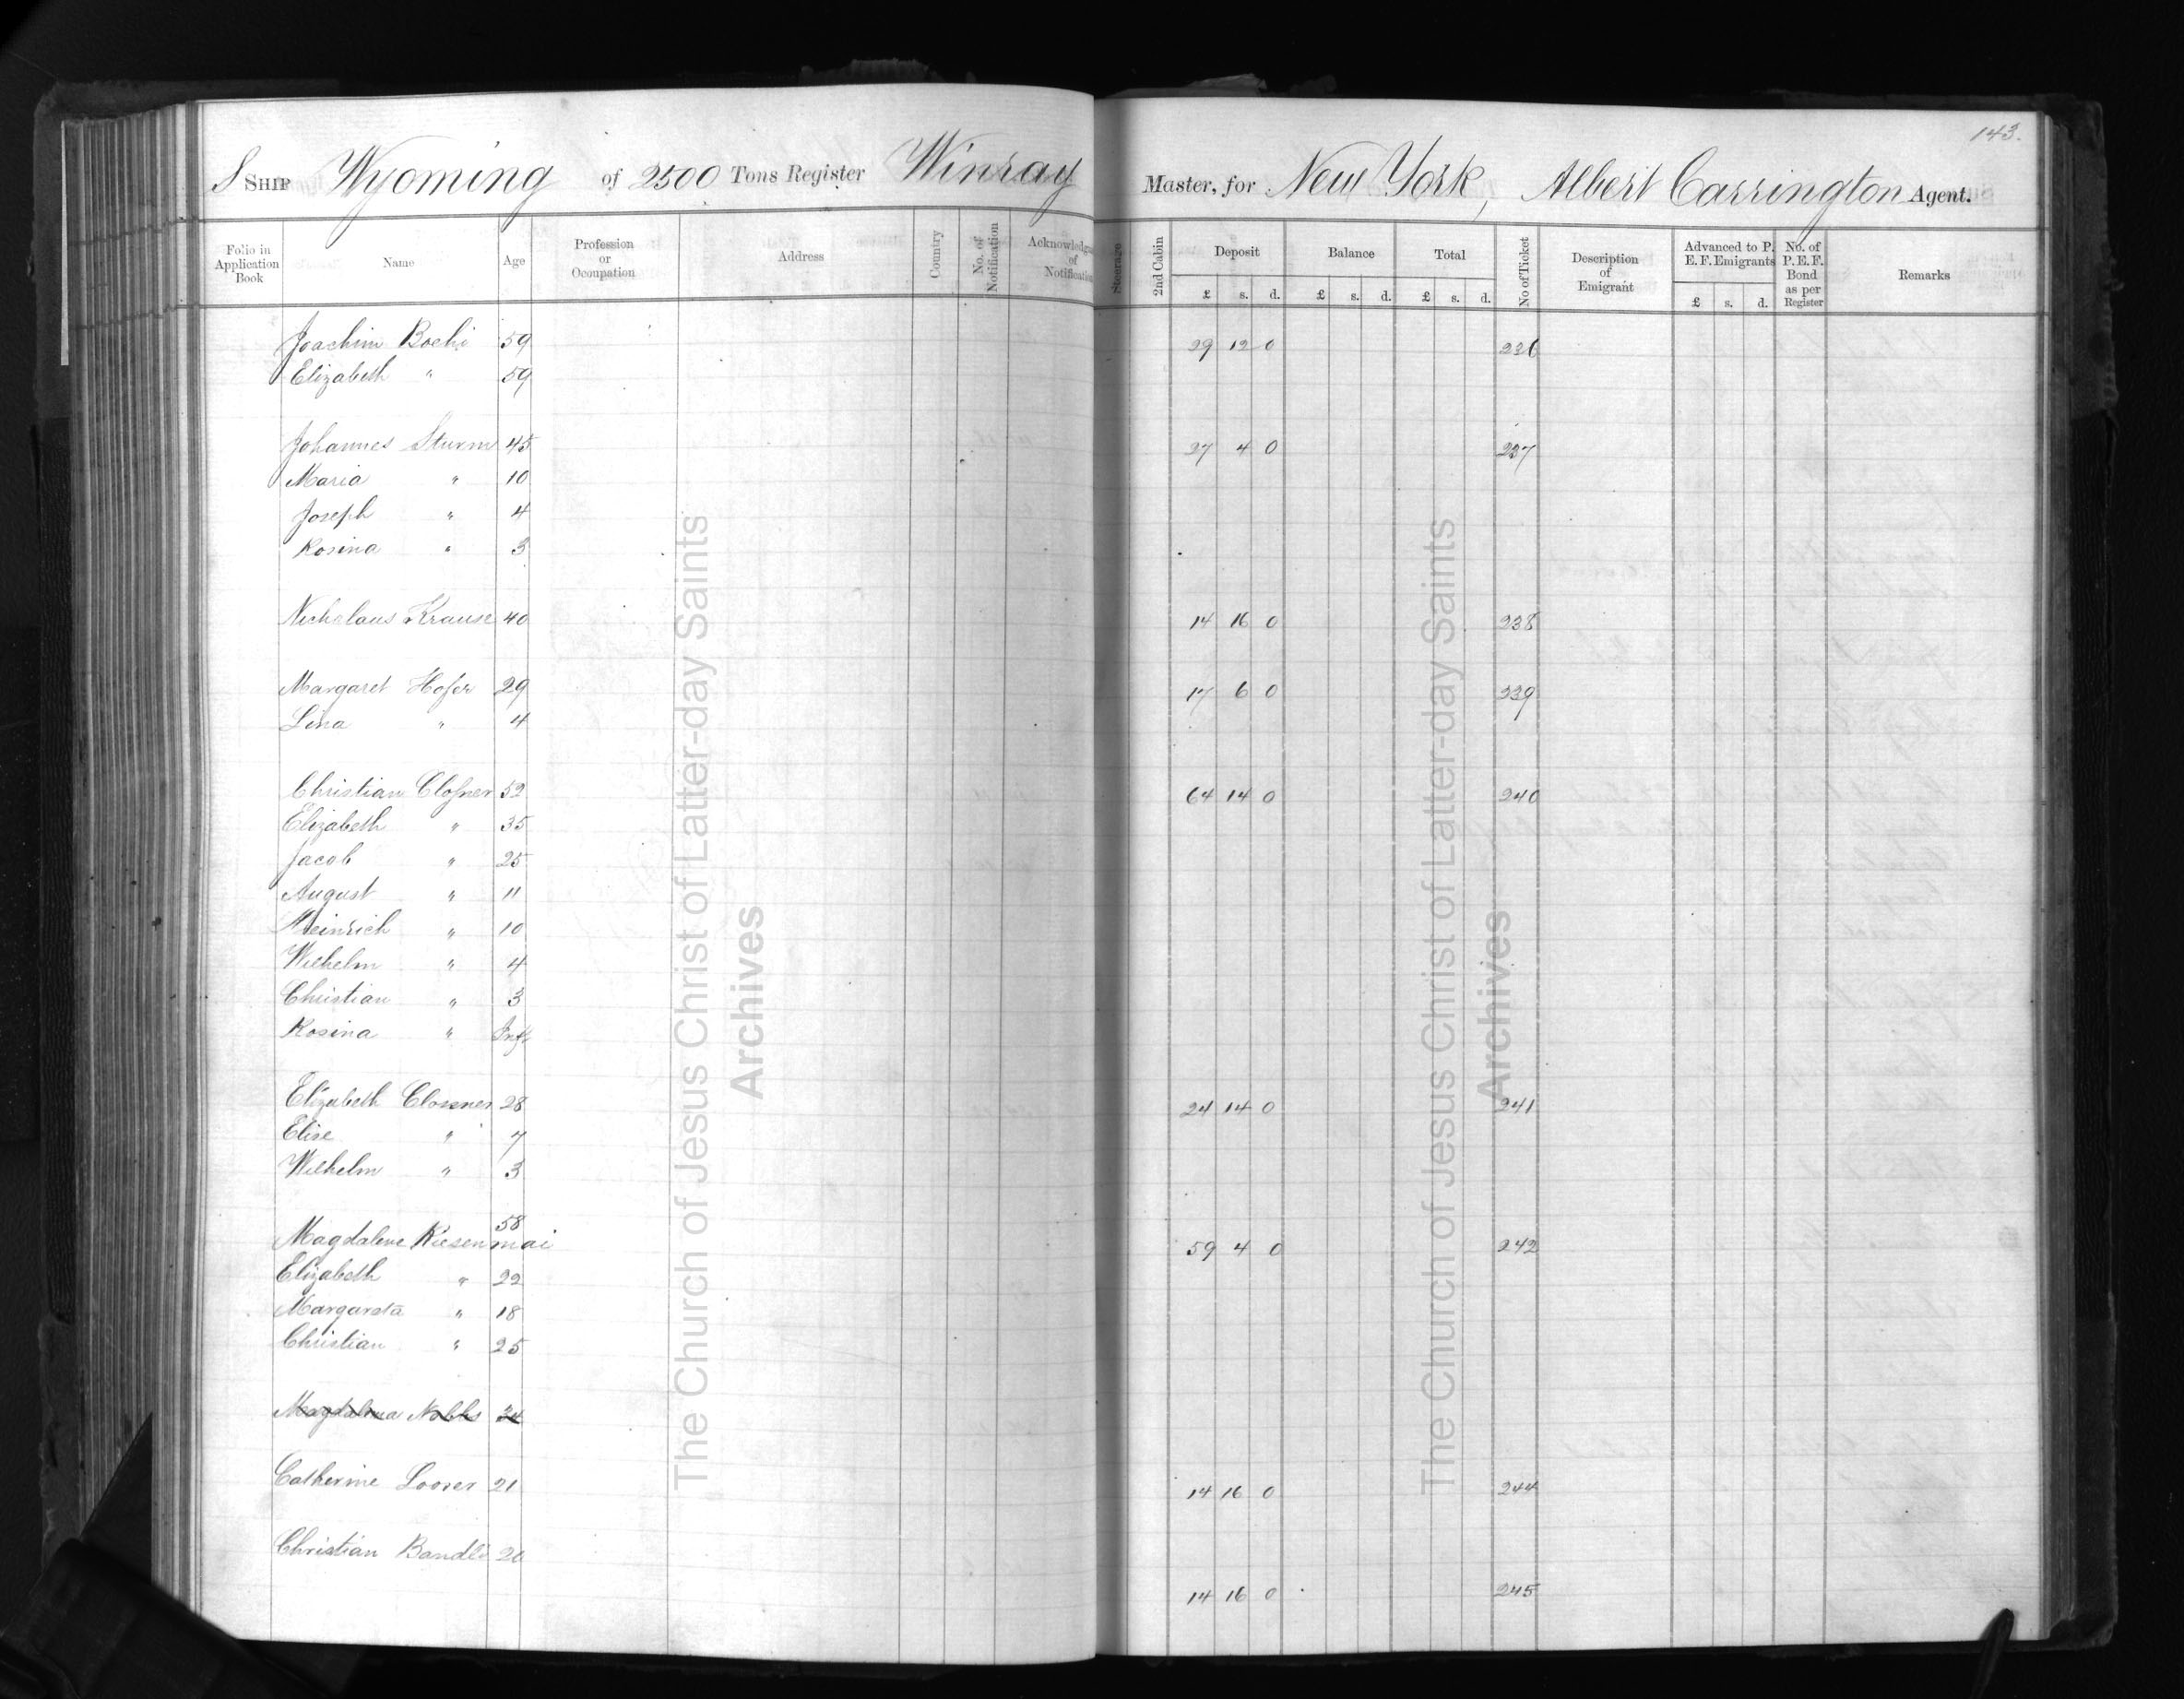 143.
S Ship Wyoming of 2500 Tons Register Winray Master, for New York, Albert Carrington Agent.
Folio in Application Book Name Age Profession or Occupation Address Country No. of Notification Acknowledg of Notification Steerage 2nd Cabin Deposit £ s. d. Balance £ s. d. Total £ s. d. No of Ticket Description of Emigrant Advanced to P. E. F. Emigrants £ s. d. No. of P. E. F. Bond as per Register Remarks
Joachim Boehi 59 29 12 0 236
Elizabeth " 59
Johannes Sturm 45 27 4 0 237
Maria " 10
Joseph " 4
Rosina " 3
Nicholaus Krause 40 14 16 0 238
Margaret Hofer 29 17 6 0 239
Lina " 4
Christian Closner 52 64 14 0 240
Elizabeth " 35
Jacob " 25
August " 11
Heinrich " 10
Wilhelm " 4
Christian " 3
Rosina " Inft
Elizabeth Closner 28 24 14 0 241
Elise " 7
Wilhelm " 3
Magdalene Riesenmai 58 59 4 0 242
Elizabeth " 22
Margareta " 18
Christian " 25
Magdalena Nobbs 34
Catherine Looser 21 14 16 0 244
Christian Bandli 20
14 16 0 245
The Church of Jesus Christ of Latter-day Saints
Archives
The Church of Jesus Christ of Latter-day Saints
Archives